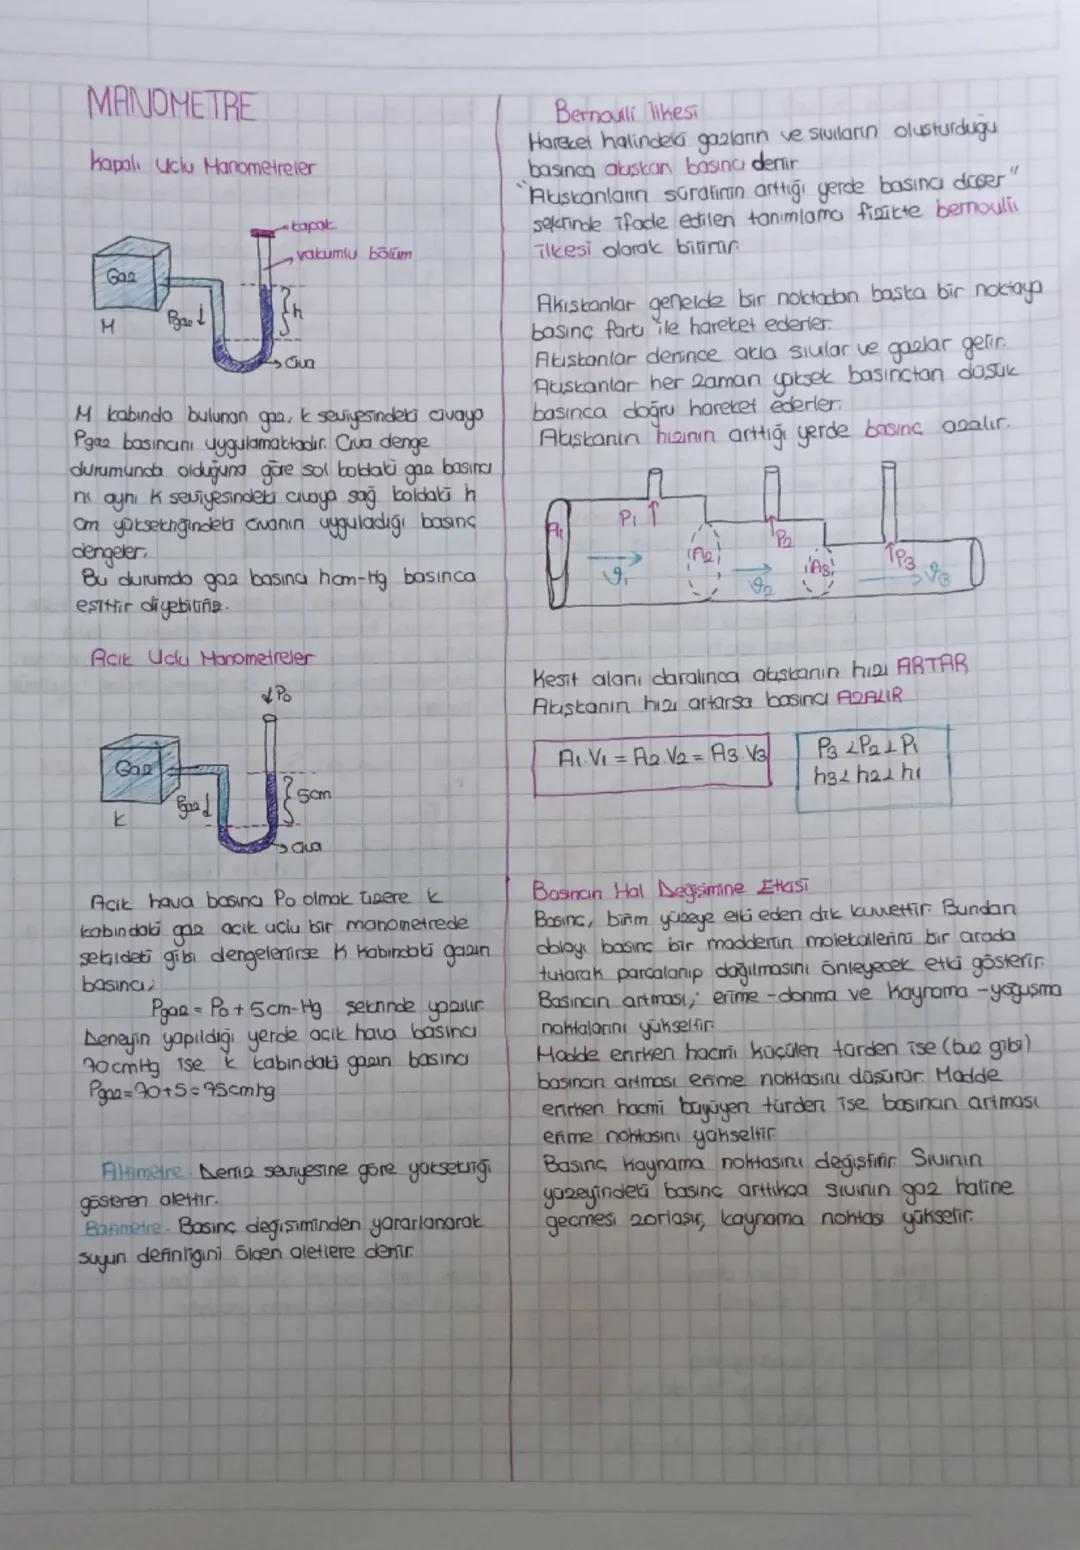 MANOMETRE
Kapalı Uclu Manometreler
kapak
vakumlu bölüm
Gaz
Pgaz
h
M
Cıva
M kabında bulunan gaz, k seviyesindeki civaya
Pgaz basıncını uygulamaktadır. Cıva denge
durumunda olduğuna göre sol koldaki gaz basıncı
nı aynı K seviyesindeki civaya sağ koldaki h
cm yüksekliğindeki civanın uyguladığı basınç
dengeler.
Bu durumda gaz basıncı hcm-Hg basınca
eşittir diyebiliriz.
Acık Uclu Manometreler
Po
Gaz
Pgaz
5cm
k
Cıva
Acık hava basıncı Po olmak üzere k
kabındaki gaz açık uçlu bir manometrede
şekildeki gibi dengelenirse K kabındaki gazın
basıncı,
Pgaz = Po + 5cm-Hg şeklinde yazılır.
Deneyin yapıldığı yerde acık hava basıncı
70cmHg ise k kabındaki gazın basıncı
Pgaz=70+5=75cmhg
Altimetre. Deniz seviyesine göre yüksekliği
gösteren alettir.
Batimetre. Basınç değişiminden yararlanarak
suyun derinliğini ölçen aletlere denir.
Bernoulli İlkesi
Hareket halindeki gazların ve sıvıların oluşturduğu
basınca akışkan basıncı denir
"Akışkanların süratinin arttığı yerde basıncı düşer"
şeklinde ifade edilen tanımlama fizikte bernoulli
ilkesi olarak bilinir.
Akışkanlar genelde bir noktadan başka bir noktaya
basınç farkı ile hareket ederler.
Akışkanlar denince akla sıvılar ve gazlar gelir.
Akışkanlar her zaman yüksek basınçtan düşük
basınca doğru hareket ederler.
Akışkanın hızının arttığı yerde basınç azalır.
A1
P1
ϑ1
A2
P2
ϑ2
A3
P3
ϑ3
Kesit alanı daralınca akışkanın hızı ARTAR
Akışkanın hızı artarsa basıncı AZALIR
A1.V1 = A2.V2 = A3.V3
P3<P2<P1
h3<h2<h1
Basıncın Hal Değişimine Etkisi
Basınç, birim yüzeye etki eden dik kuvvettir. Bundan
dolayı basınç bir maddenin moleküllerini bir arada
tutarak parçalanıp dağılmasını önleyecek etki gösterir.
Basıncın artması, erime -donma ve Kaynama -yoğuşma
noktalarını yükseltir.
Madde erirken hacmi küçülen türden ise (buz gibi)
basıncın artması erime noktasını düşürür. Madde
erirken hacmi büyüyen türden ise basıncın artması
erime noktasını yükseltir.
Basınç Kaynama noktasını değiştirir. Sıvının
yüzeyindeki basınç arttıkça sıvının gaz haline
geçmesi zorlaşır, kaynama noktası yükselir.